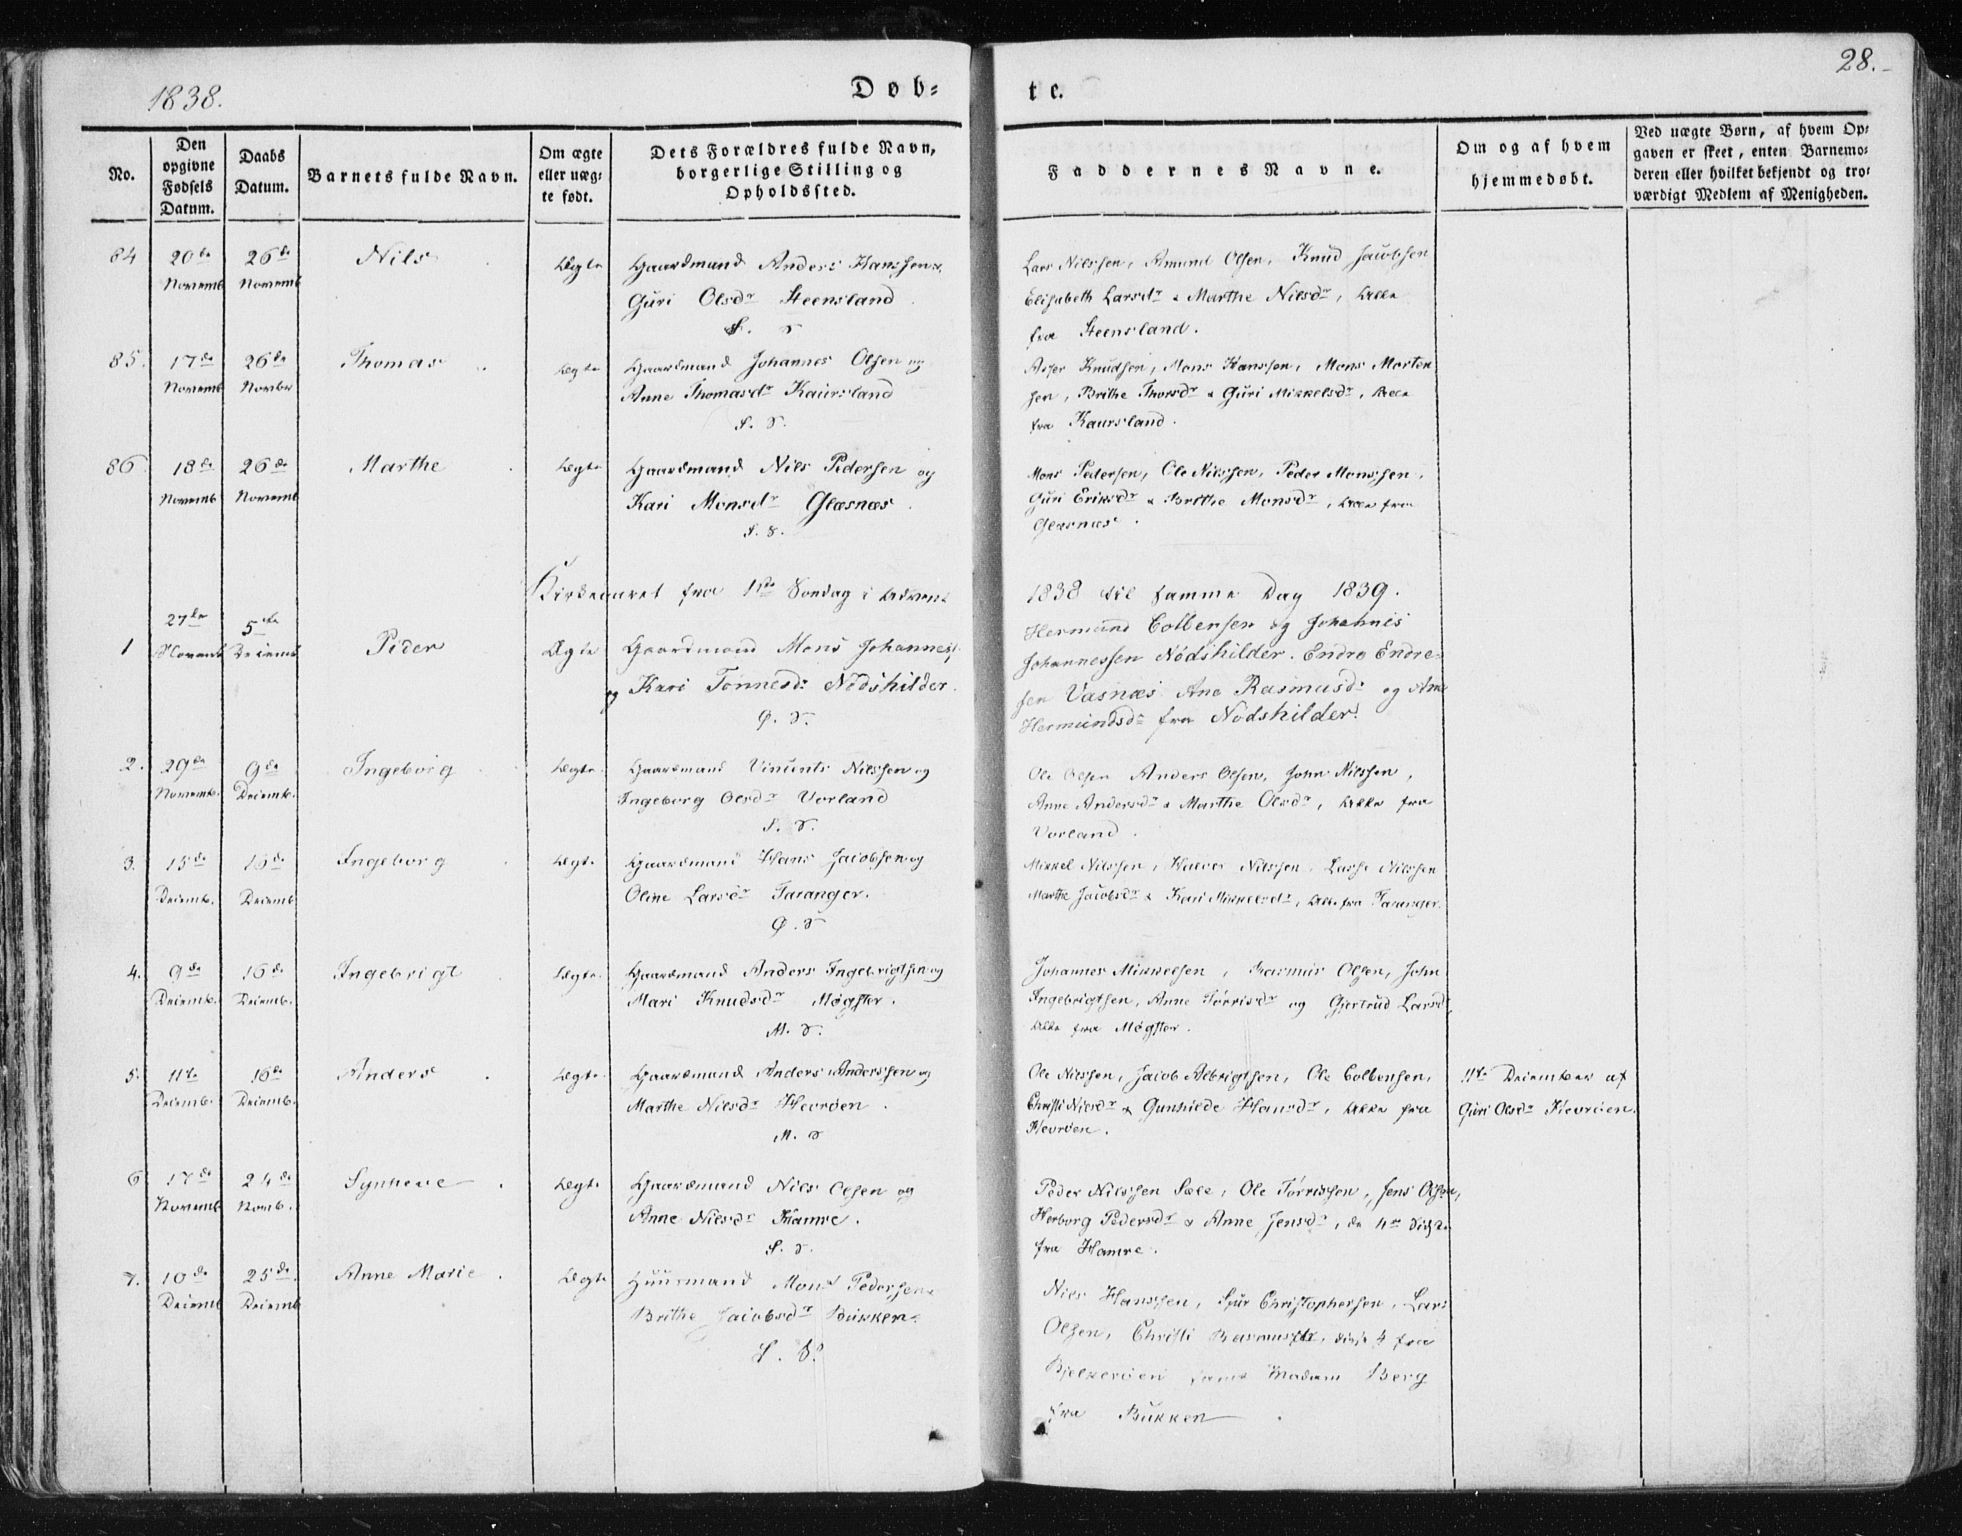 1838.
Døb=
te.
28.
No.
Den
opgivne
Fødsels
Datum.
Daabs
Datum.
Barnets fulde Navn.
Om ægte
eller uæg=
te født.
Dets Forældres fulde Navn,
borgerlige Stilling og
Opholdssted.
Faddernes Navne.
Om og af hvem
hjemmedøbt.
Ved uægte Børn, af hvem Op=
gaven er skeet, enten Barnemo=
deren eller hvilket bekjendt og tro=
værdigt Medlem af Menigheden.
84
20de
Novemb
26de
Novemb
Nils
Ægte
Gaardmand Anders Hanssen
Guri Olsdr Steensland
S. S
Lars Nilssen, Amund Olsen, Knud Jacobsen
Elisabeth Larsdr & Marthe Nilsdr, Alle
fra Steensland.
85.
17de
Novemb
26de
Novbr
Thomas
Ægte
Gaardmand Johannes Olsen og
Anne Thomasdr Kaursland
S. S.
Knudsen, Mons Hanssen, Mons Morten
sen, Brithe Thorsdr & Guri Mikkelsdr, Alle
fra Kaursland.
86.
18de
Novemb
26de
Novemb
Marthe
Ægte
Gaardmand Nils Pedersen og
Kari Monsdr Glæsnæs.
S. S.
Mons Pedersen, Ole Nilssen, Peder Monssen,
Guri Eriksdr & Brithe Monsdr, Alle fra
Glæsnæs.
Kirkeaaret fra 1ste Søndag i Advent
1838 til samme Dag 1839.
1
27de
Novemb
5te
Decemb
Peder
Ægte
Gaardmand Mons Johanness.
og Kari Tonnesdr Nödshilder.
Ø. S.
Hermund Colbensen og Johannis
Johannessen Nödshilder. Endre Endre=
sen Vasnæs Ane Rasmusdr og Ane
Hermundsdr fra Nödshilder.
2.
29de
Novemb.
9de
Decemb.
Ingeborg
Ægte.
Gaardmand Vincents Nilssen og
Ingeborg Olsdr Vorland
S. S.
Ole Olsen Anders Olsen, John Nilssen,
Anne Andersdr & Marthe Olsdr, Alle fra
Vorland.
3.
15de
Decemb.
16de
Decemb
Ingeborg
Ægte
Gaardmand Hans Jacobsen og
Oline Larsdr Taranger.
Ø. S
Mikkel Nilssen, Halvor Nilssen, Lasse Nilssen
Marthe Jacobsdr & Kari Mikkelsdr, Alle fra Taranger.
4.
9de
Decemb.
16de
Decemb.
Ingebrigt
Ægte.
Gaardmand Anders Ingebrigtsen og
Mari Knudsdr Møgster.
M. S.
Johannes Mikkelsen, Rasmus Olsen, John
Ingebrigtsen, Anne Tørrisdr og Gjertrud Larsdr,
Alle fra Møgster.
5.
11te
Decemb.
16de
Decemb.
Anders
Ægte.
Gaardmand Anders Anderssen og
Marthe Nilsdr Hevrøen.
M. S
Ole Nilssen, Jacob Albrigtsen, Ole Colbensen,
Christi Nilsdr & Gunhilde Hansdr, Alle fra
Hevrøen.
11te December af
Guri Olsdr Hevrøen.
6
17de
Novemb
24de
Novb.
Synneve
Ægte
Gaardmand Nils Olsen og
Anne Nilsdr Hamre.
S. S.
Peder Nilssen Sæle, Ole Tørrissen, Jens Olsen,
Herborg Pedersdr & Anne Jensdr, de 4re sidste
fra Hamre.
7.
10de
Decemb
25de
Decemb
Anne Marie
Ægte
Huusmand Mons Pedersen
Brithe Jacobsdr Bukken.
S. S.
Nils Hanssen, Sjur Christophersen, Lars
Olsen, Christi Rasmusdr, disse 4 fra
Bjelkerøen samt Madam Berg
fra Bukken.